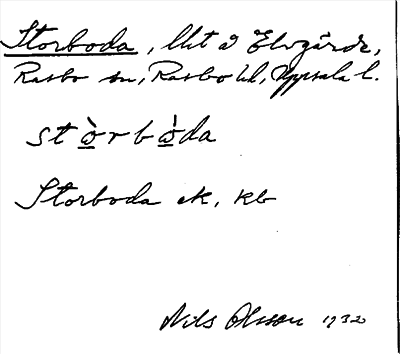 Storboda, lht å Elvgärde,
Rasbo sn, Rasbo hd, Uppsala l.
stòrbòda
Storboda ek, kb
Nils Olsson 1932